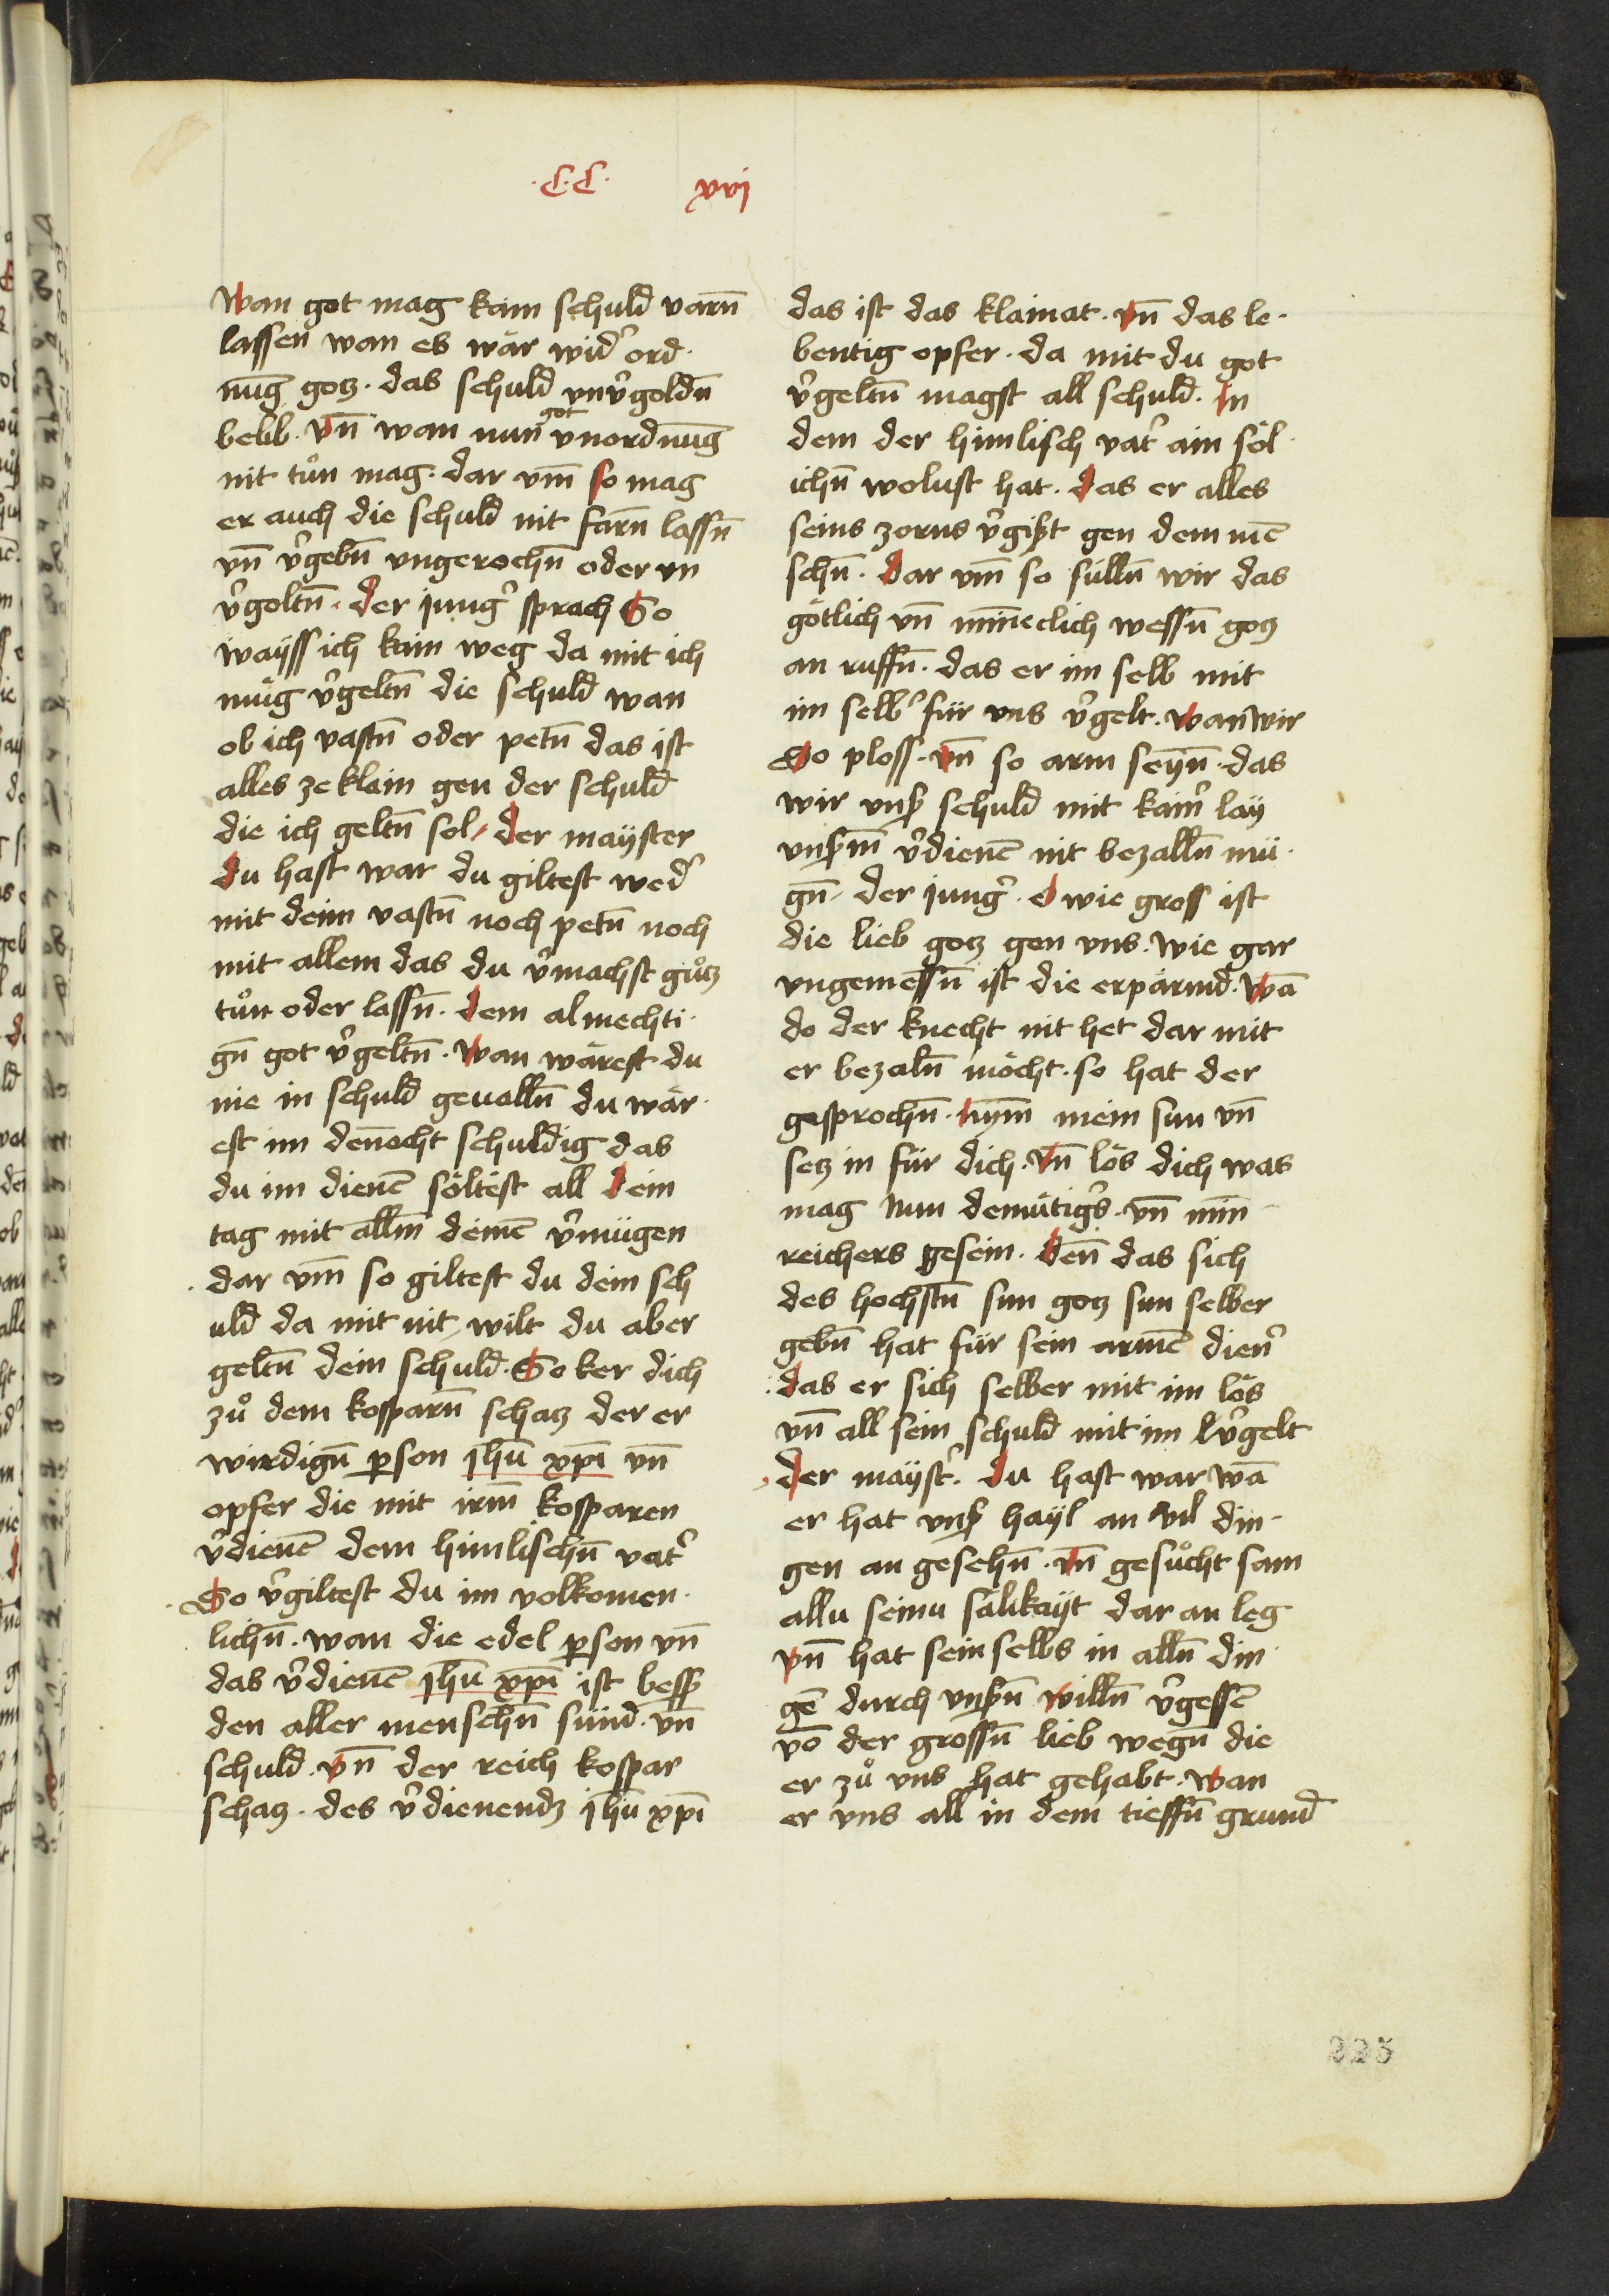 ·C·C· xvi
Wan got mag kain schuld varn̄
lassen wan es wär wid᾽ ord·
nūg gotz. das schuld vnv᾽goldn̄
beleib. Vn̄ wan nun got vnordnūg
nit tůn mag. dar vm̄ so mag
er auch die schuld nit farn̄ lassn̄
vn̄ v᾽gebn̄ vngerochn̄ oder vn
v᾽goltn̄. der jung᾽ sprach So
wayss ich kain weg da mit ich
müg v᾽geltn̄ die schuld wan
ob ich vastn̄ oder petn̄ das ist
alles ze klain gen der schuld
die ich geltn̄ sol, der mayster
Du hast war du giltest wed᾽
mit deim vastn̄ noch petn̄ noch
mit allem das du v᾽machst gůtz
tůn oder lassn̄. dem almechti·
gn̄ got v᾽geltn̄. Wan wärest du
nie in schuld geualln̄ du wär·
est im den̄ocht schuldig das
du im dienē söltest all dein
tag mit allm̄ deinē v᾽mügen
dar vm̄ so giltest du dein sch
uld da mit nit, wilt du aber
geltn̄ dein schuld. So ker dich
zů dem kosparn̄ schatz der er
wirdign̄ person jhū xpī vn̄
opfer die mit irm̄ kosparen
v᾽dienē dem himlischn̄ vat᾽
So v᾽giltest du im volkomen·
lichn̄. wan die edel person vn̄
das v᾽dienē jhū xpī ist besser
den aller menschn̄ sünd. vn̄
schuld. Vn̄ der reich kospar
schatz. des v᾽dienendz jhū xpī
das ist das klainat. Vn̄ das le·
bentig opfer. da mit du got
v᾽geltn̄ magst all schuld. In
dem der himlisch vat᾽ ain söl·
ichn̄ wolust hat. das er alles
seins zorns v᾽gißt gen dem mē
schn̄. Dar vm̄ so sülln̄ wir das
götlich vn̄ minneclich wessn̄ gotz
an ruffn̄. das er im selb mit
im selb᾽ für vns v᾽gelt. wan wir
So ploss. vn̄ so arm seyn̄. das
wir vnser schuld mit kaim᾽ lay
vnserm̄ v᾽dienē nit bezalln̄ mü·
gn̄. der jung᾽. O wie gross ist
die lieb gotz gen vns. wie gar
vngemessn̄ ist die erpärmd. wā
do der knecht nit het dar mit
er bezaln̄ möcht. so hat der
gesprochn̄. Nym̄ mein sun vn̄
setz in für dich. Vn̄ lös dich was
mag nun demütig᾽s. vn̄ min̄
reichers gesein. den̄ das sich
des hochstn̄ sun gotz sun selber
gebn̄ hat für sein armē dien᾽
das er sich selber mit im lös
vn̄ all sein schuld mit im v᾽gelt
der mayst᾽. du hast war wā
er hat vnser hayl an vil din·
gen an gesehn̄. vn̄ gesůcht sam
allu seinu sälikayt dar an leg
vn̄ hat sein selbs in alln̄ din·
gē durch vnsern̄ willn̄ v᾽gessē
vō der grossn̄ lieb wegn̄ die
er zů vns hat gehabt. Wan
er vns all in dem tieffn̄ grund
225